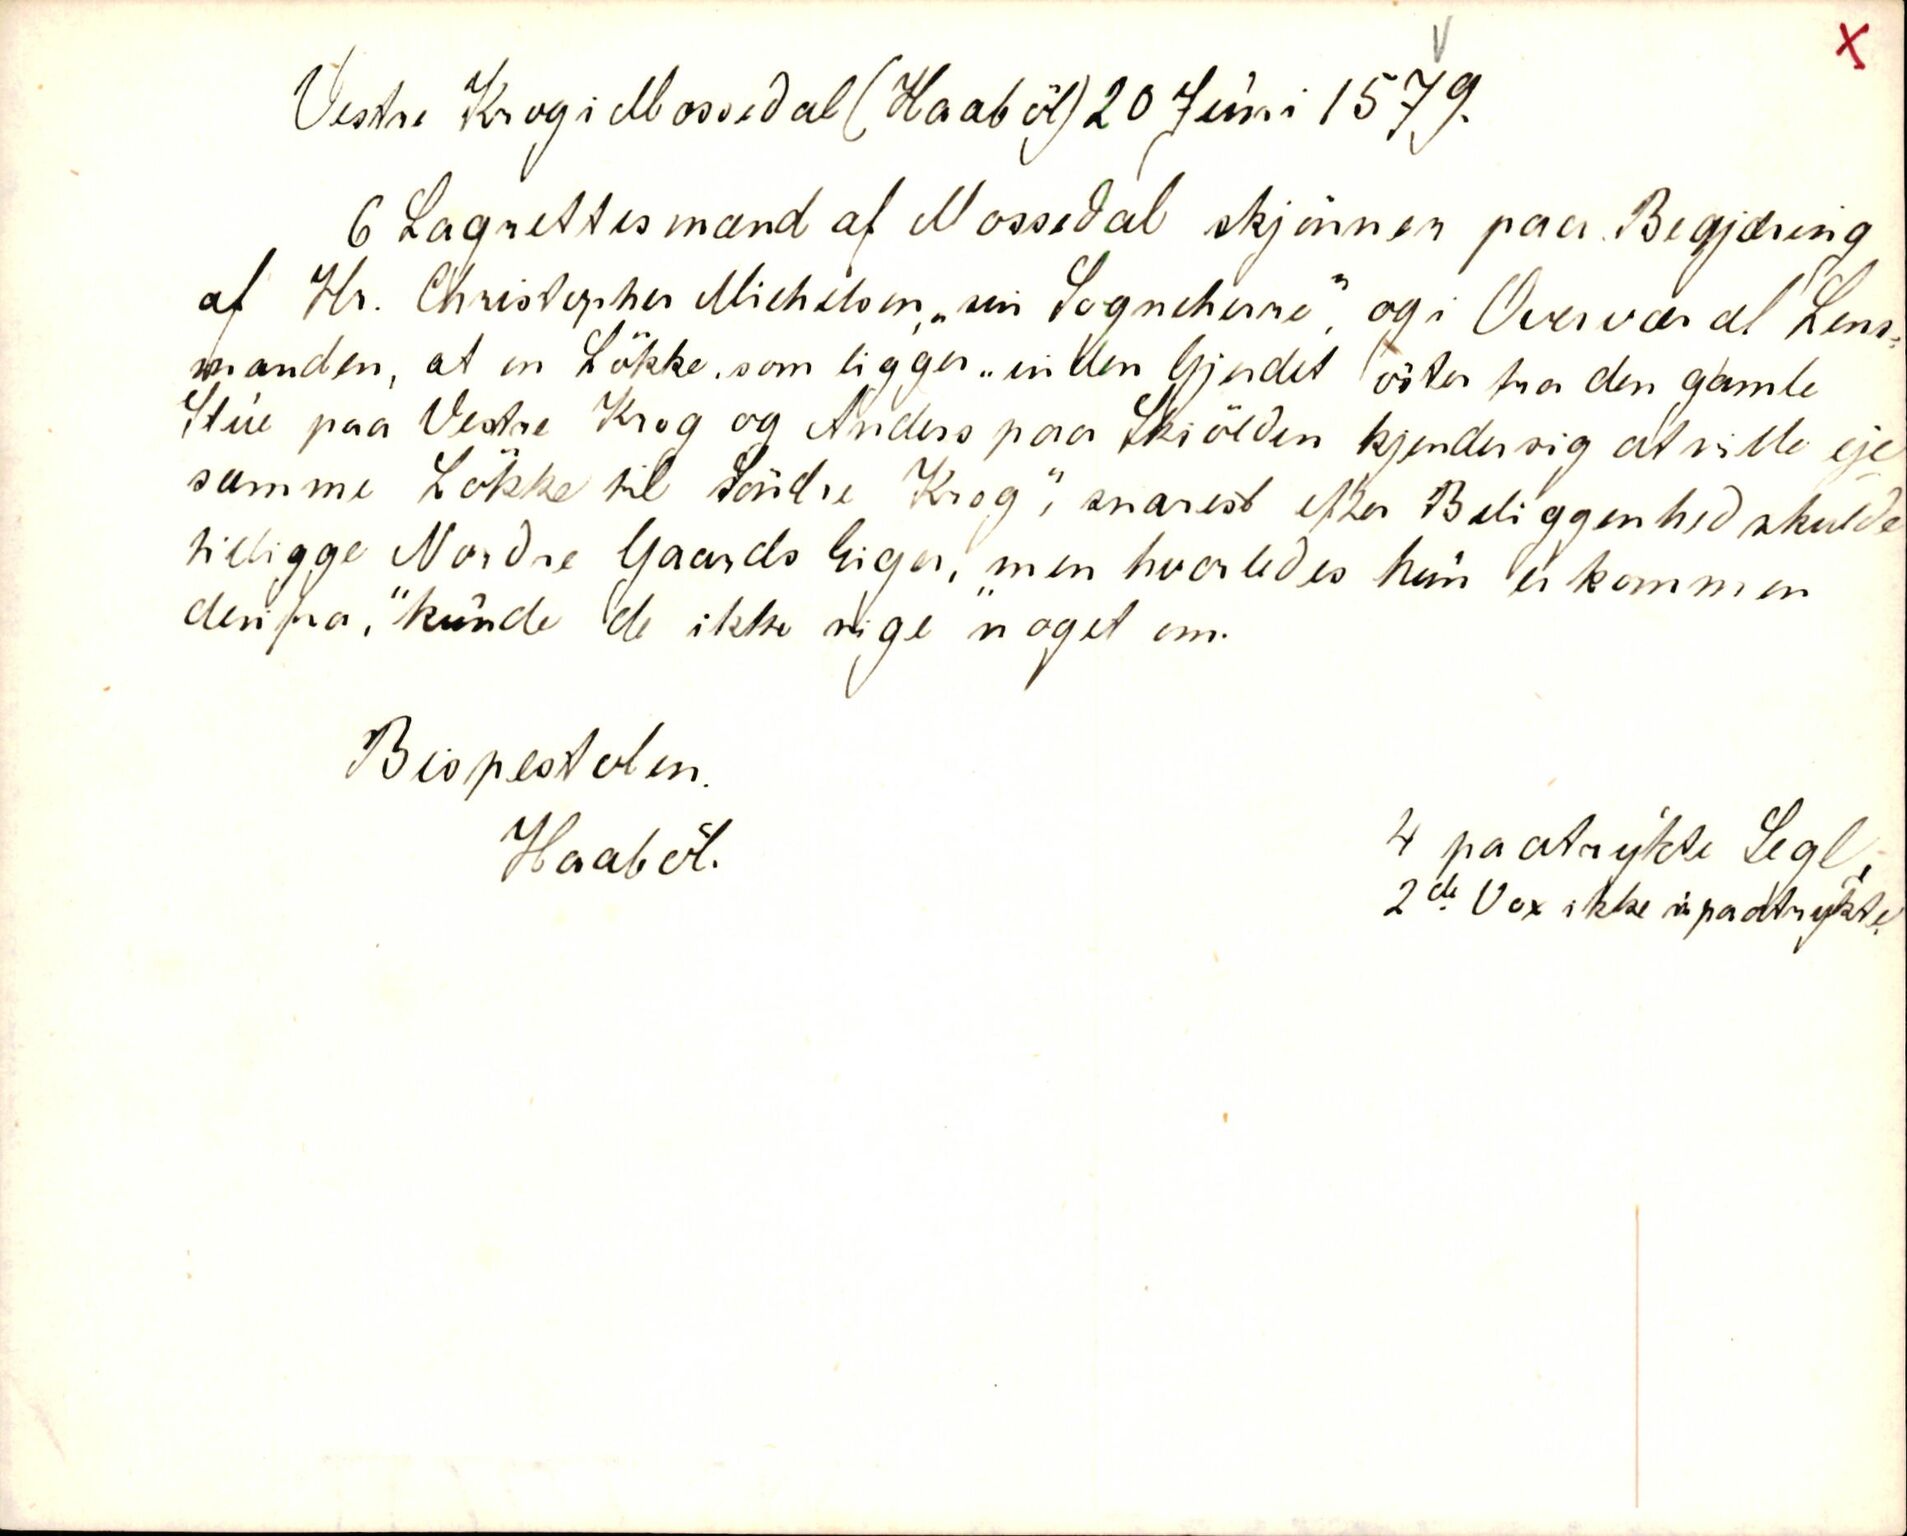 Vestre Krog i Mossedal (Haaböl) 20 Juni 1579.
6 Lagrettesmænd af Mossedal skjönner paa Begjæring
af Hr. Christopher Michelsen, „sin Sogneherre”, og i Overvær af Lens-
manden, at en Lökke, som ligger „inden Gjerdet öster fra den gamle
Stue paa Vestre Krog og Anders paa Skiölden kjender sig at ville eje
samme Lökke til Söndre Krog”, snarest efter Beliggenhed skulde
tilligge Nordre Gaards Eiger, men hvorledes hun er kommen
derifra, “kunde de ikke sige noget om.
Bispestolen.
Haaböl.
4 paatrykte Segl,
2de Vox ikke paatrykte.
X